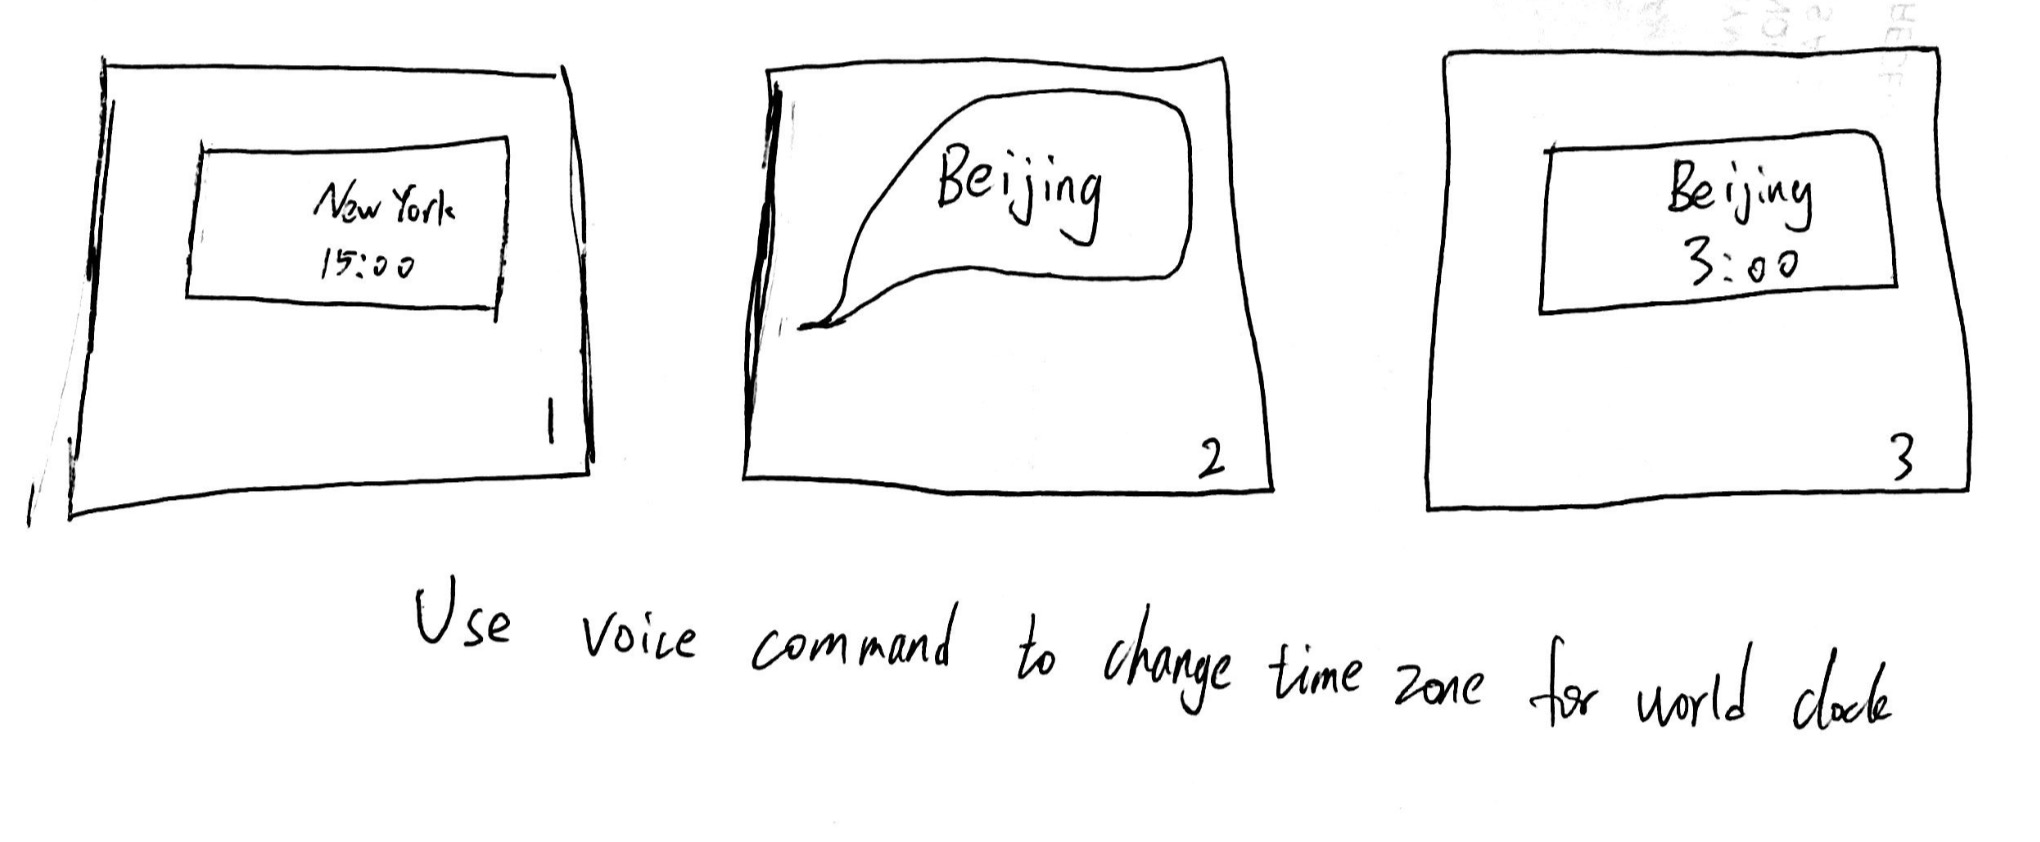 New York
15:00
1
Beijing
2
Beijing
3:00
3
Use voice command to change time zone for world clock